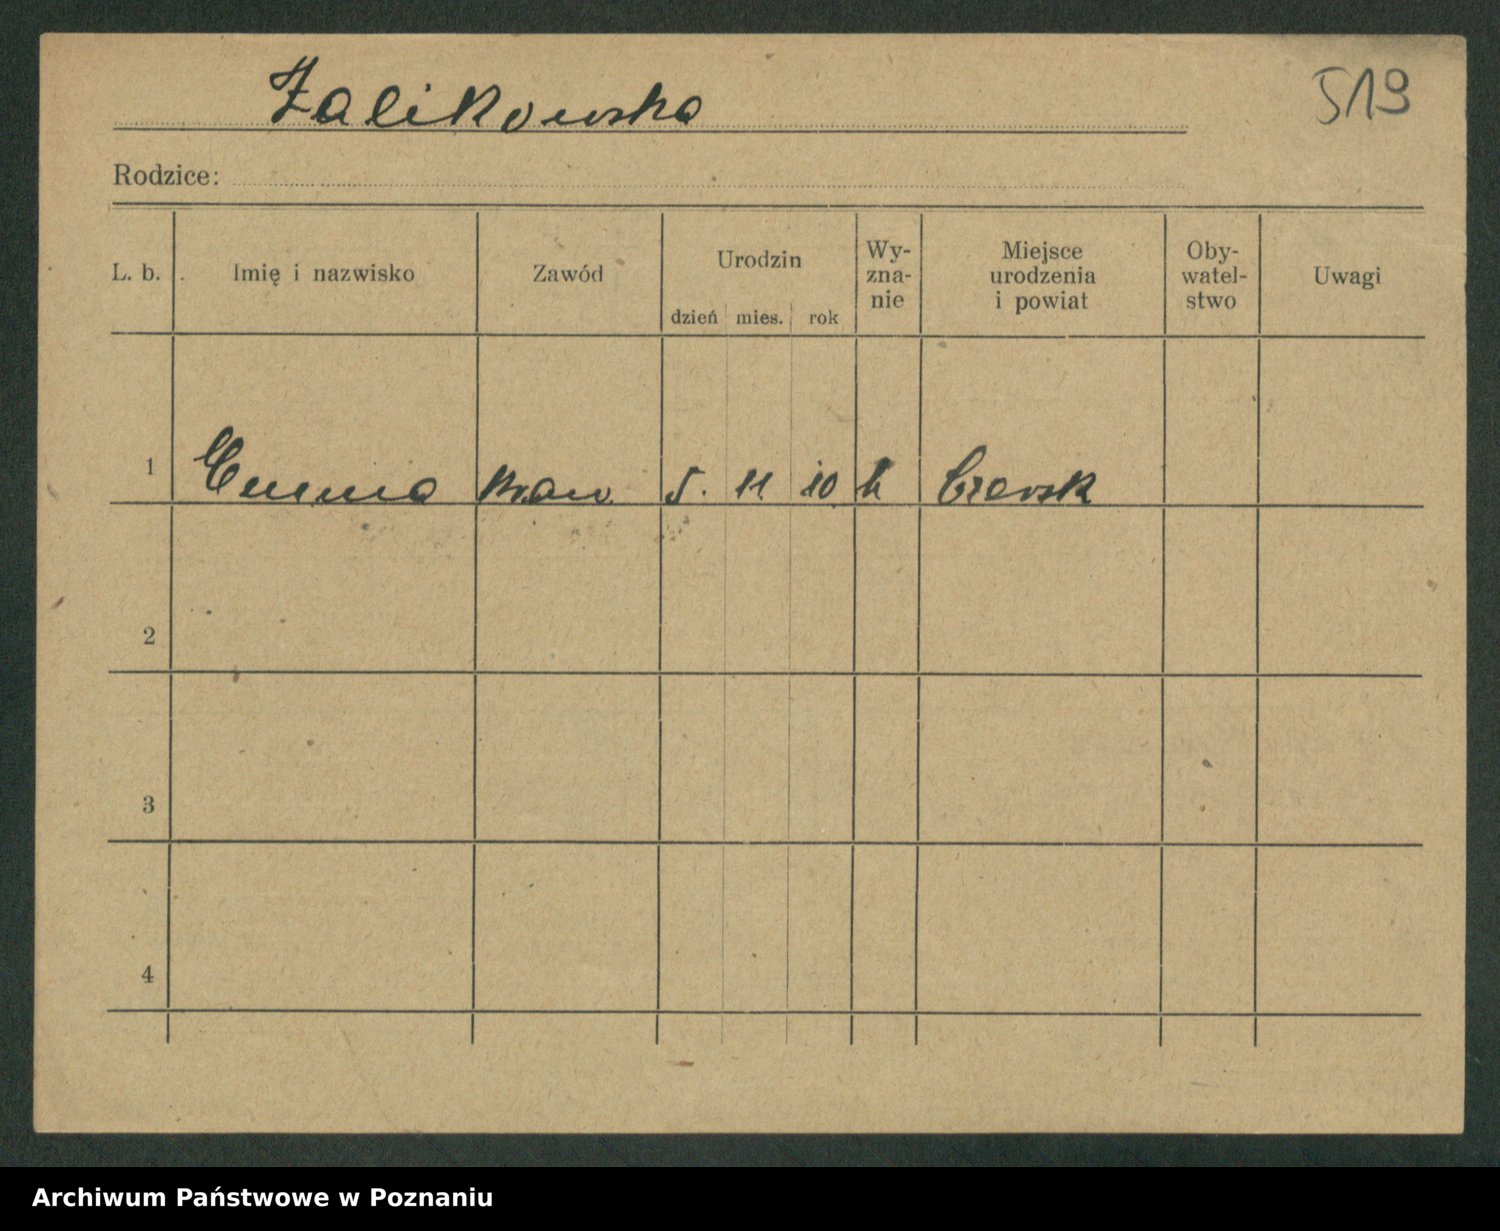 Żalikowska
519
Rodzice:
L. b.
Imię i nazwisko
Zawód
Urodzin
dzień mies. rok
Wy-
zna-
nie
Miejsce
urodzenia
i powiat
Oby-
watel-
stwo
Uwagi
1 Emma 5. 11 10 Czersk
2
3
4
Archiwum Państwowe w Poznaniu